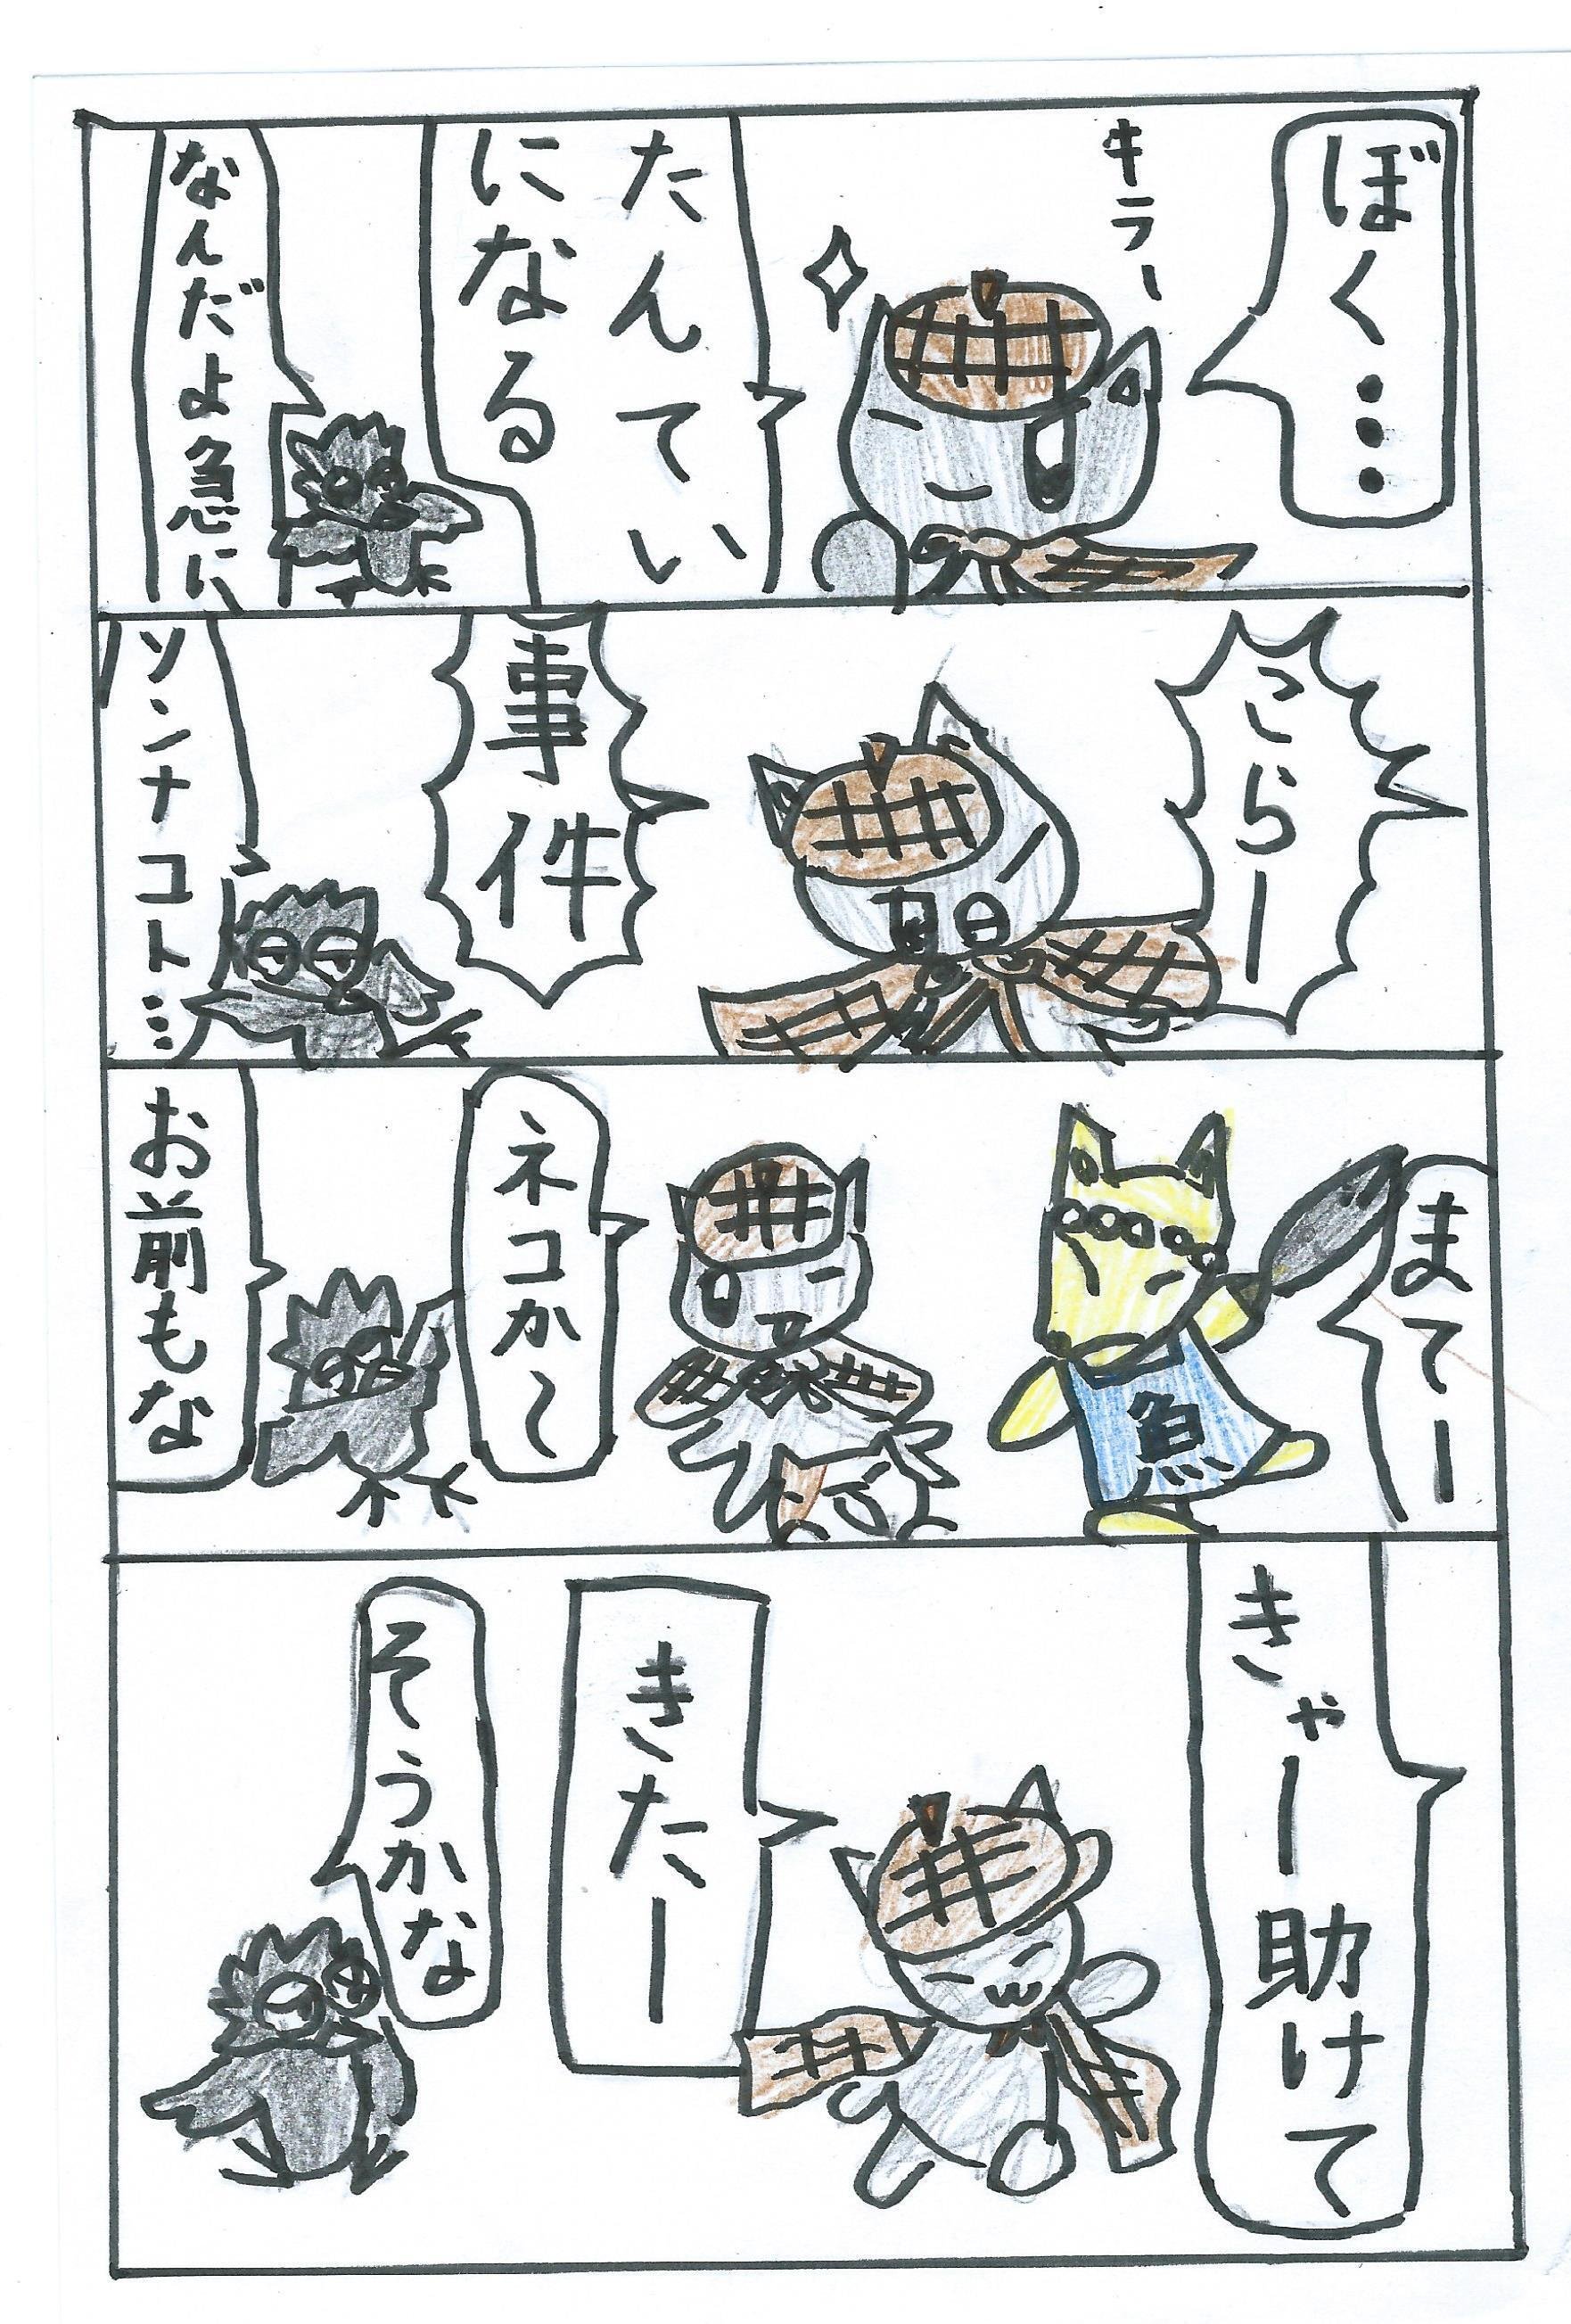 ぼく…
キラー
たんてい
になる
なんだよ急に
こらー
事件
ソンナコト…
まてー
魚
ネコか〜
お前もな
きゃー助けて
きたー
そうかな